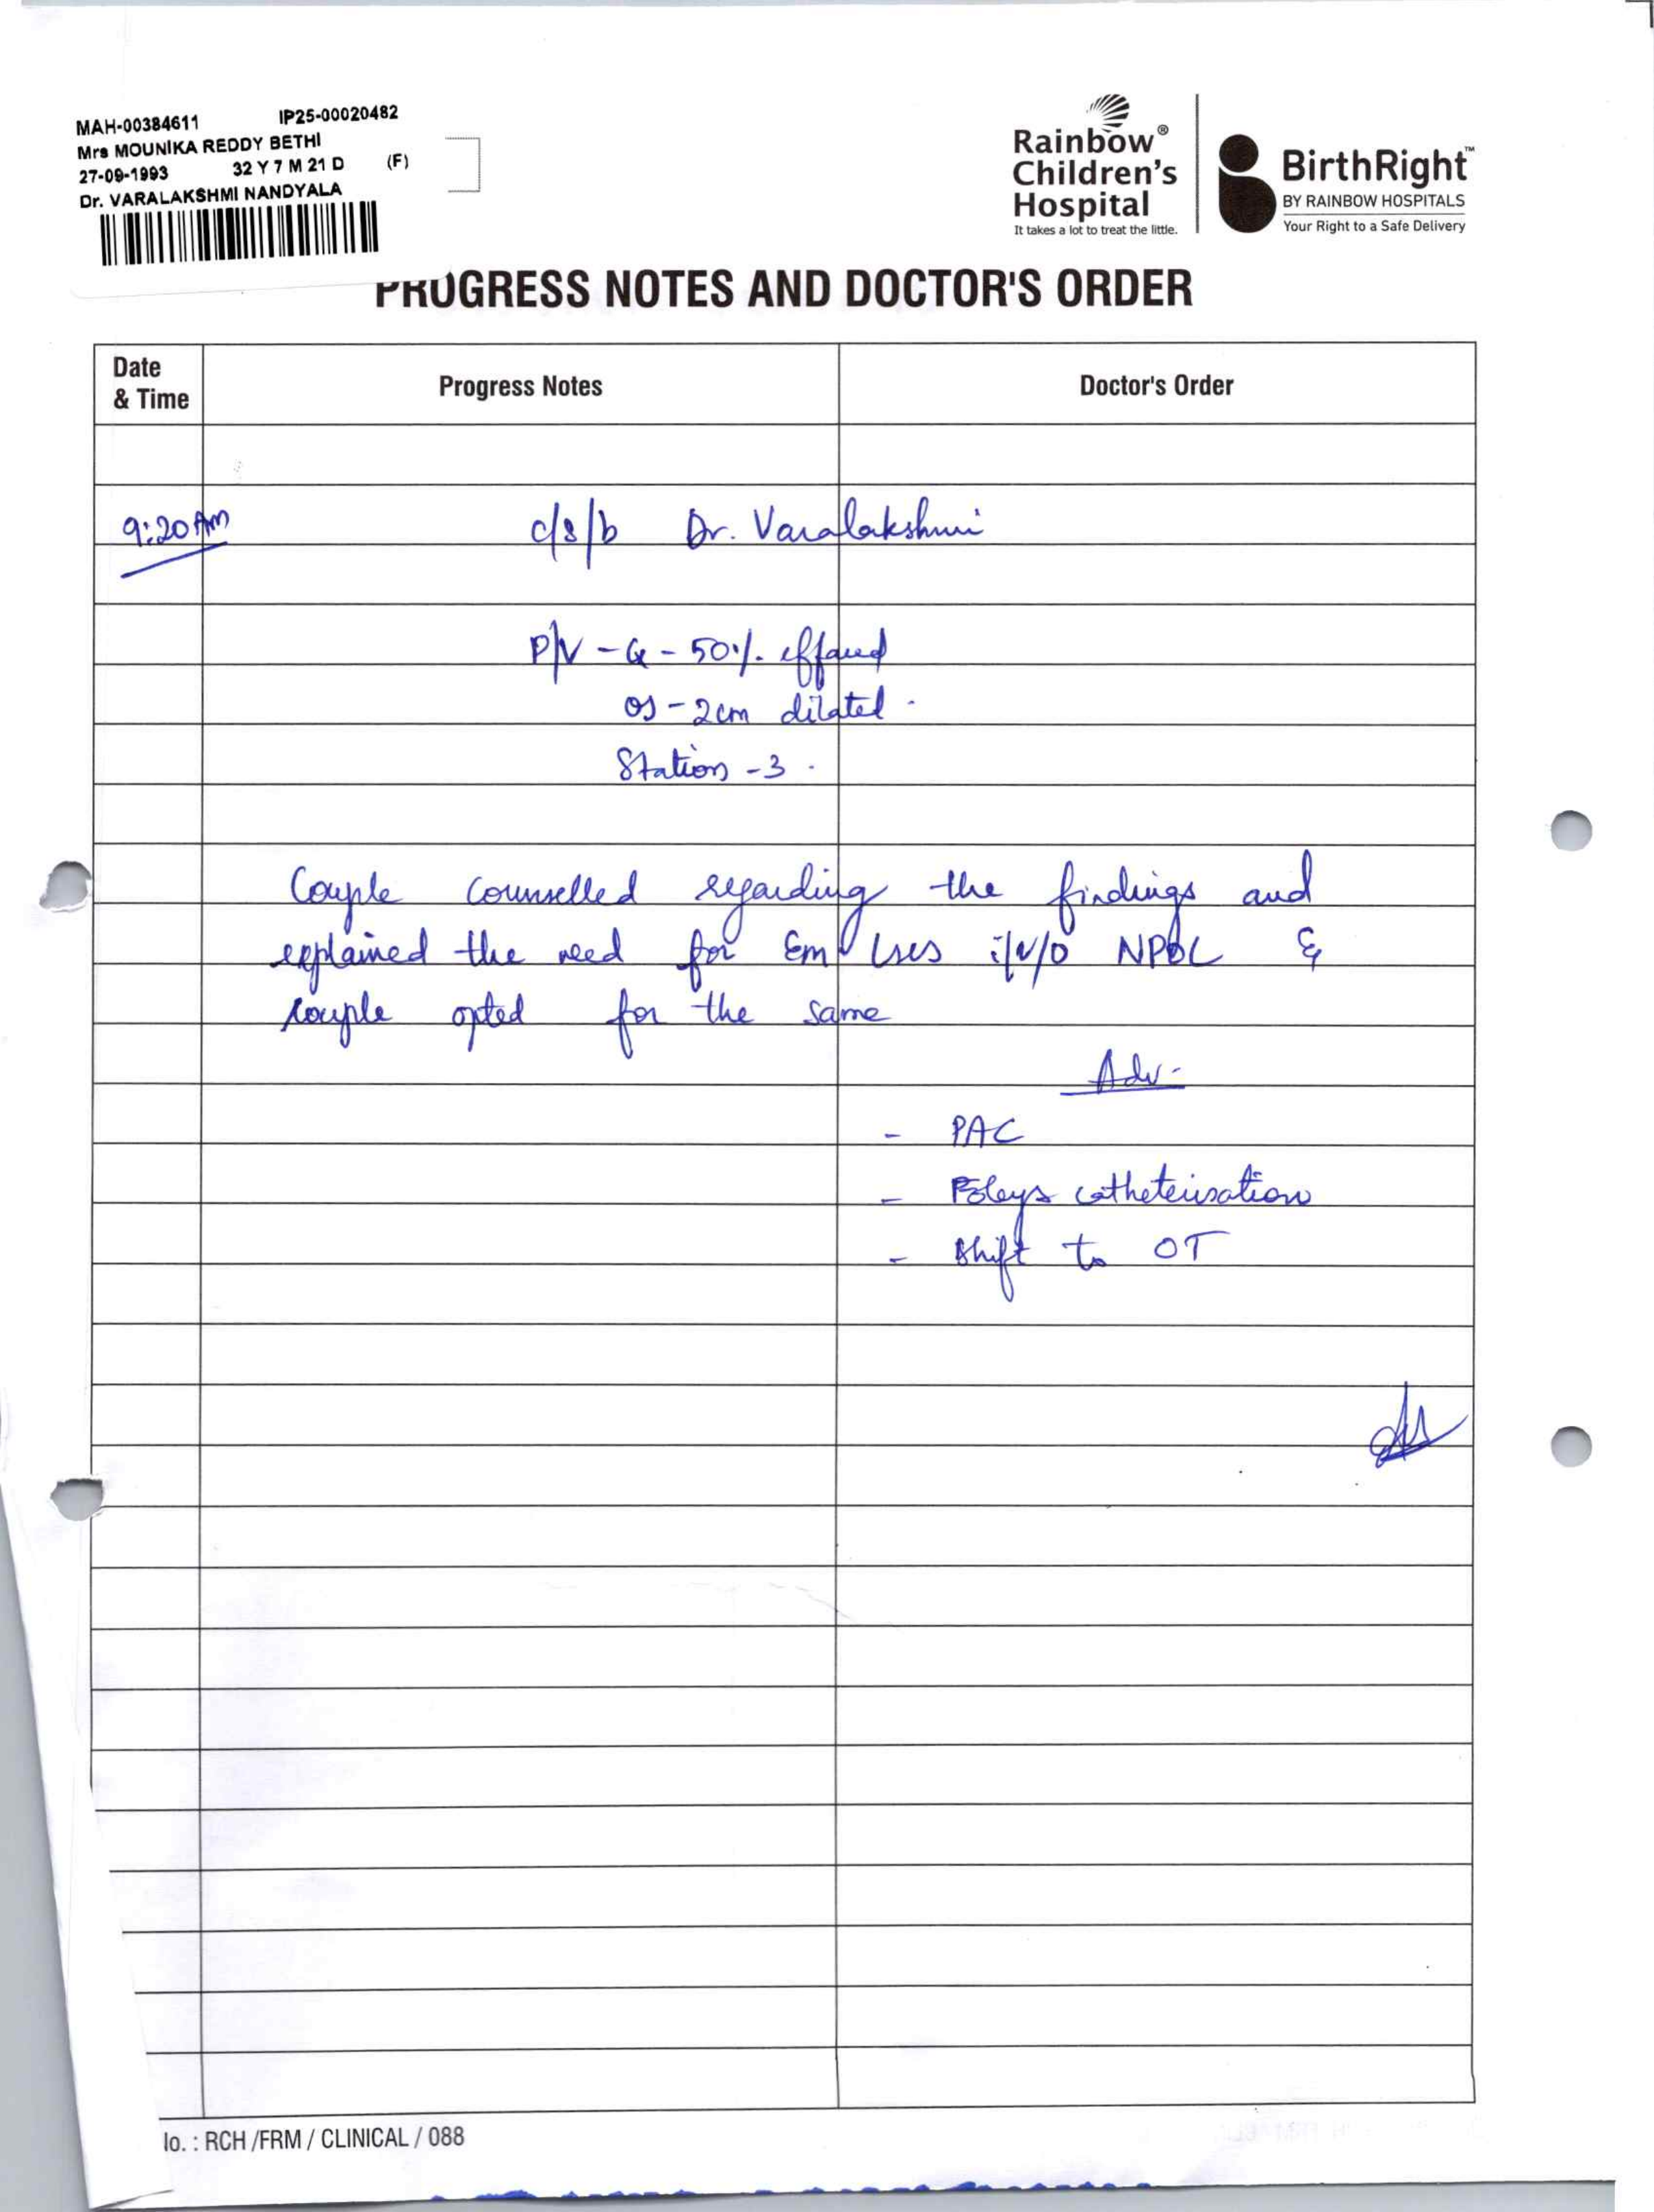 MAH-00384611 IP25-00020482
Mrs MOUNIKA REDDY BETHI
27-09-1993 32 Y 7 M 21 D (F)
Dr. VARALAKSHMI NANDYALA
Rainbow®
Children's
Hospital
It takes a lot to treat the little.
BirthRight™
BY RAINBOW HOSPITALS
Your Right to a Safe Delivery
PROGRESS NOTES AND DOCTOR'S ORDER
Date
& Time
Progress Notes
Doctor's Order
9:20 Am c/s/b Dr. Varalakshmi
P/V - Cx - 50% effaced
os - 2cm dilated.
Station -3.
Couple counselled regarding the findings and
explained the need for Em LSCS i/v/o NPOL &
couple opted for the same
Adv-
- PAC
- Foleys catheterisation
- Shift to OT
lo. : RCH /FRM / CLINICAL / 088